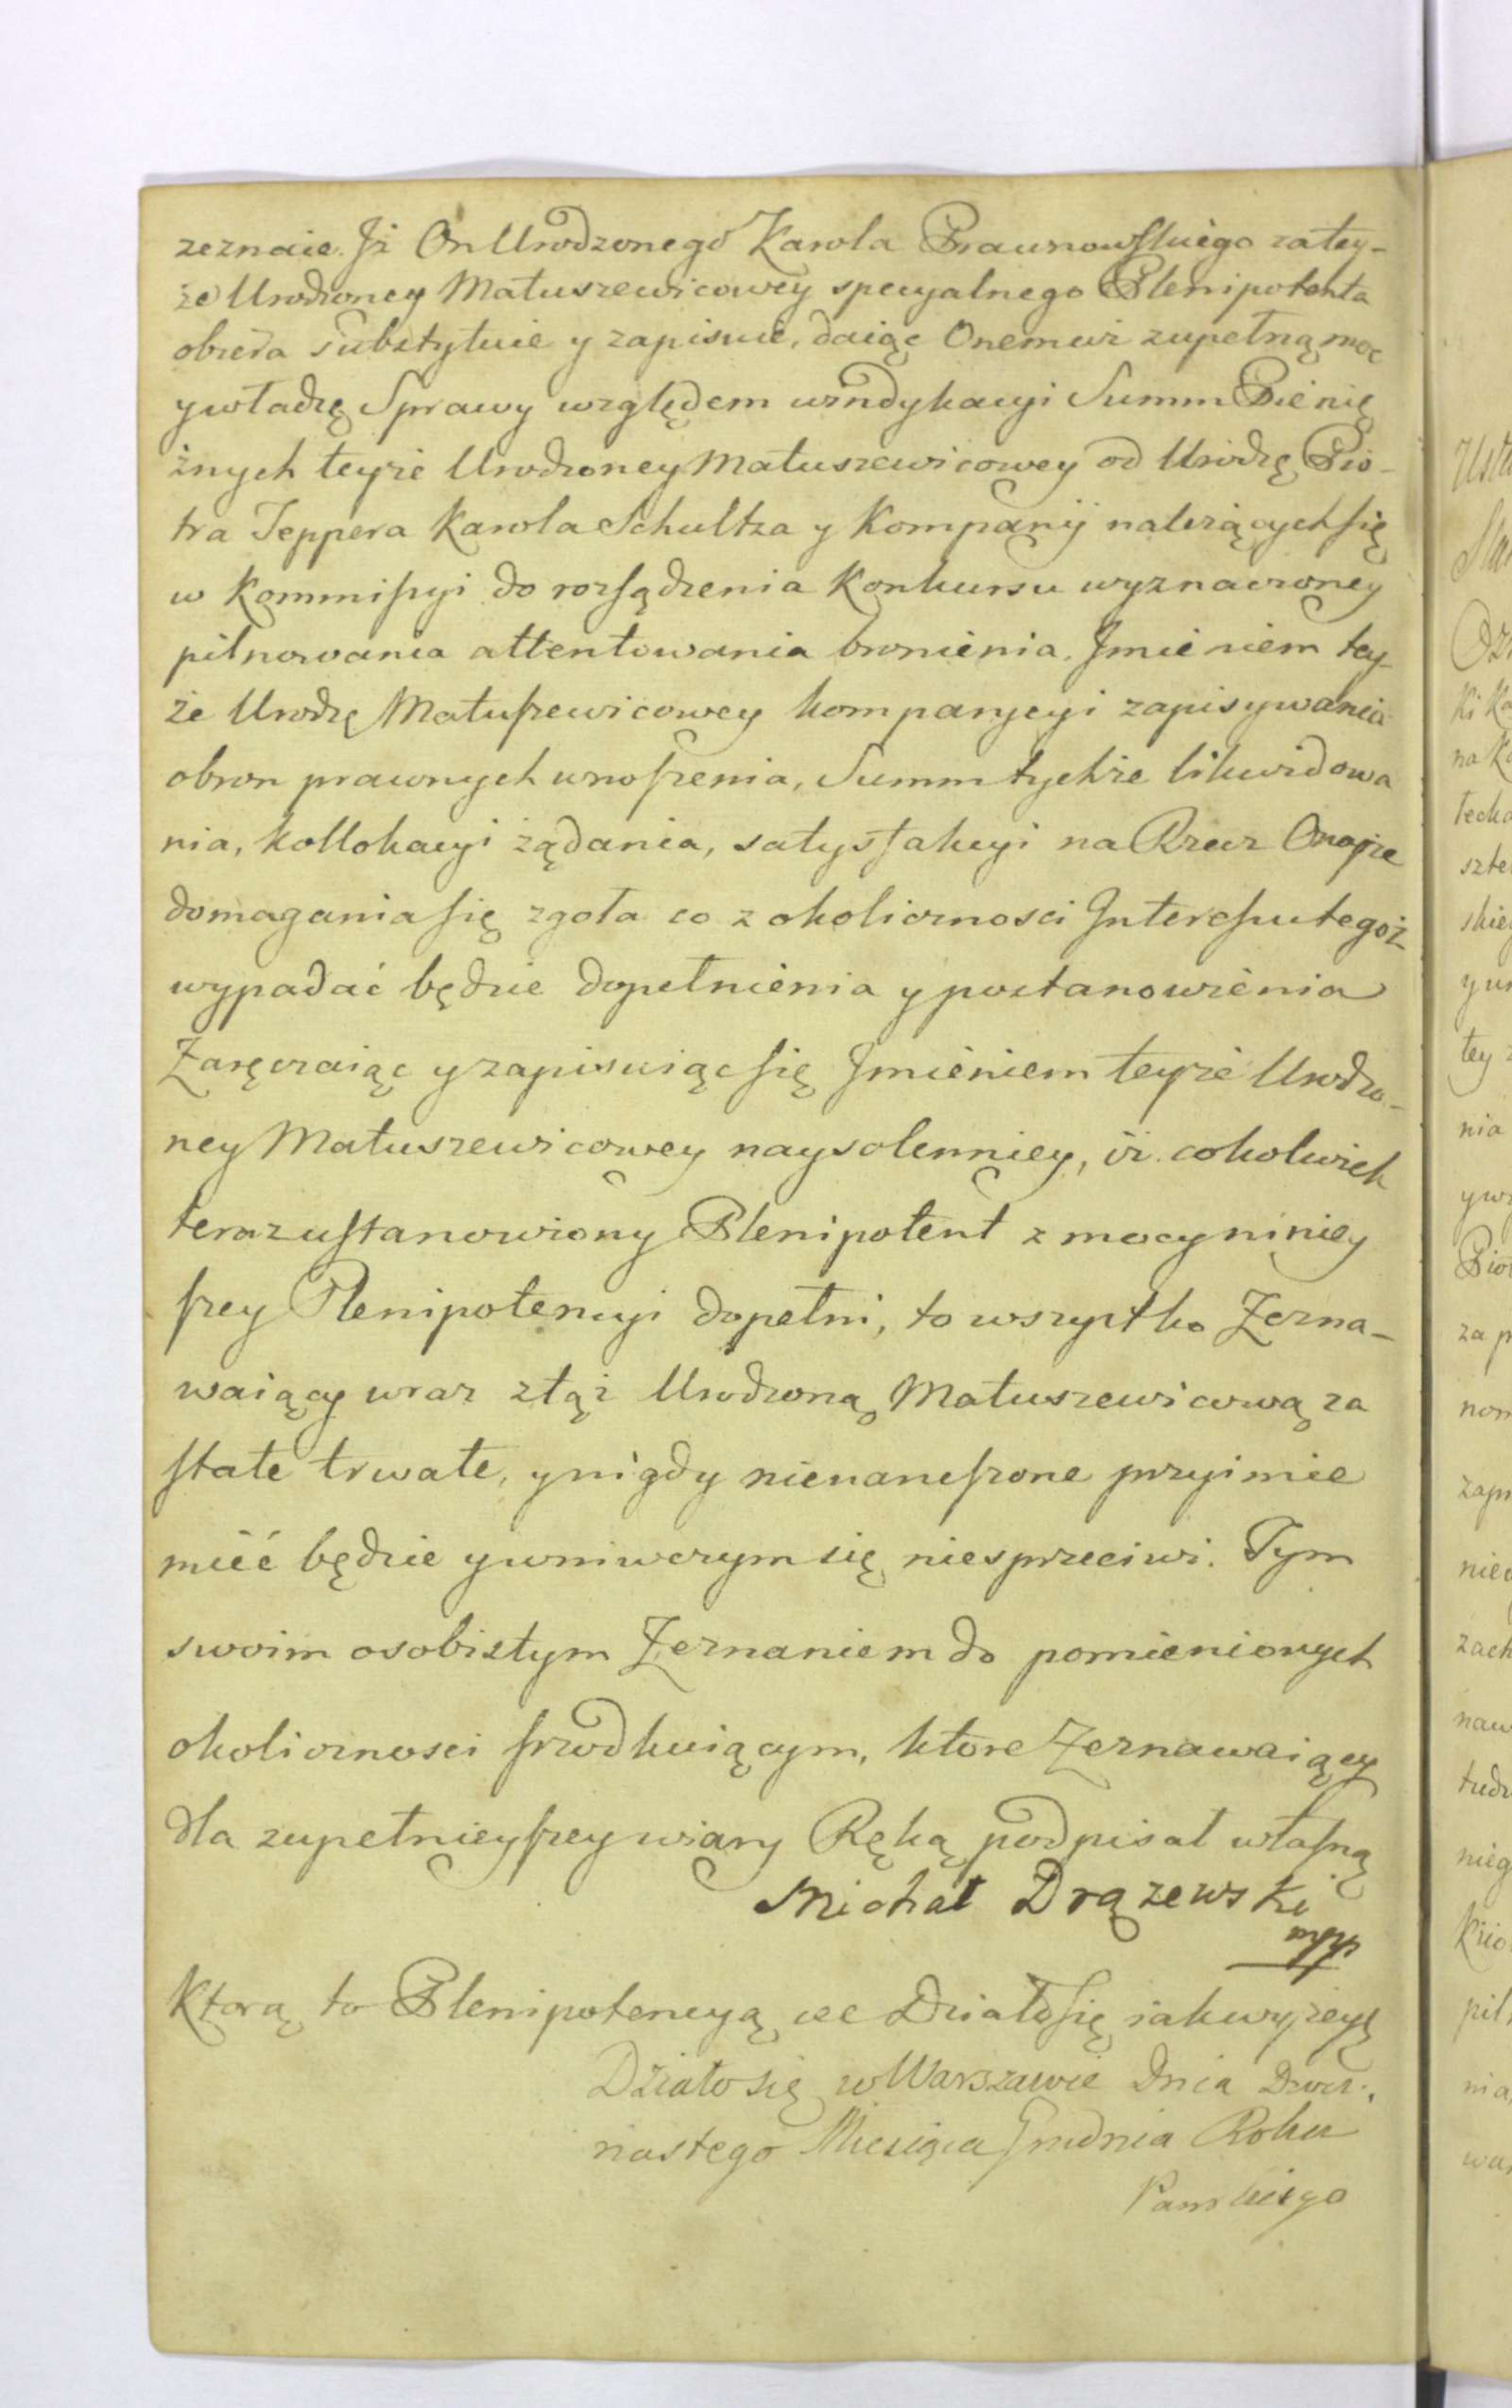 zeznaie. Jż On Urodzonego Karola Braunowskiego za tey-
że Urodzoney Matuszewicowey specyalnego Plenipotenta
obiera substytuie y zapisuie, daiąc Onemuż zupełną moc
y władzę Sprawy względem windykacyi Summ Pienię
żnych teyże Urodzoney Matuszewicowey od Urodzę Pio-
tra Teppera Karola Schultza y Kompanij należących się
w Kommissyi do rozsądzenia Konkursu wyznaczoney
pilnowania attentowania bronienia. Jmieniem tey-
że Urodzę Matuszewicowey komparycyi zapisywania
obron prawnych wnoszenia, Summ tychże likwidowa
nia, kollokacyi żądania, satysfakcyi na Rzecz Oneyże
domagania się zgoła co z okoliczności Interessu tegoż
wypadać będzie dopełnienia y postanowienia
Zaręczaiąc y zapisuiąc się Jmieniem teyże Urodzo-
ney Matuszewicowey naysolenniey, iż cokolwiek
teraz ustanowiony Plenipotent z mocy niniey
szey Plenipotencyi dopełni, to wszystko Zezna-
waiący wraz z tąż Urodzoną Matuszewicową za
stałe trwałe, y nigdy nienaneszone przyimie
mieć będzie y wniwczym się niesprzeciwi. Tym
swoim osobistym Zeznaniem do pomienionych
okoliczności szrodkuiącym, które Zeznawaiący
dla zupełnieyszey wiary Ręką podpisał własną
Michał Drązewski
mpp
Ktorą to Plenipotencyą etc Działo się iak wyżey
Działo się w Warszawie Dnia Dwu-
nastego Miesiąca Grudnia Roku
Panskiego